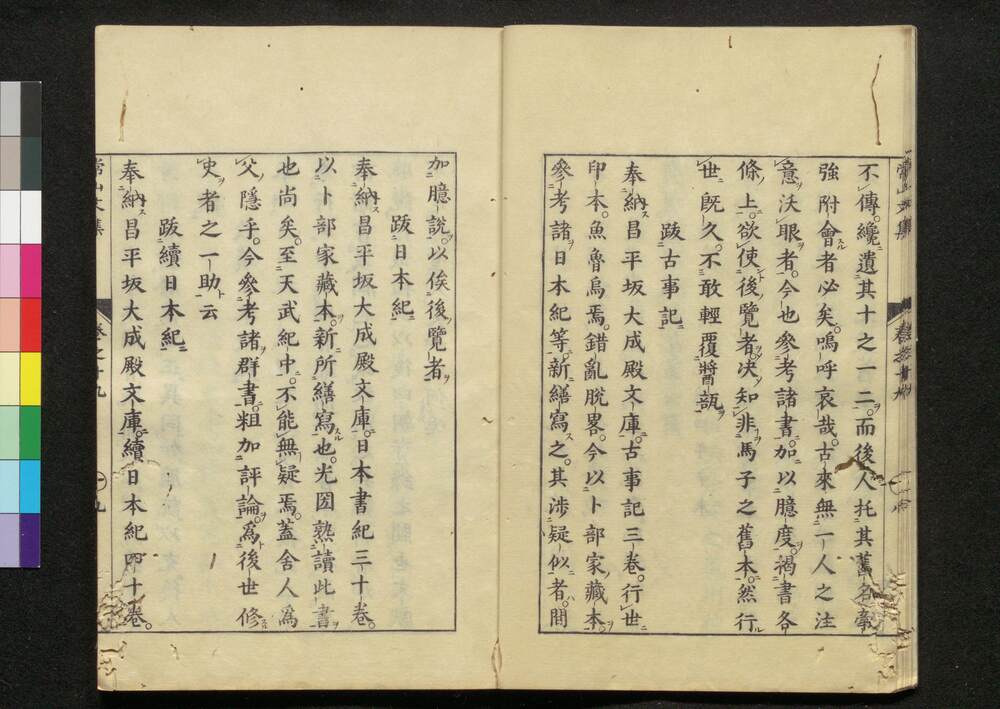 不傳。纔遺其十之一二。而後人托其舊名牽
強附會者必矣。嗚呼哀哉。古來無一人之注
意沃眼者。今也參考諸書。加以臆度。褐書各
條上。欲使後覽者。决知非馬子之舊本。然行
世既久。不敢輕覆醬瓿
跋古事記
奉納昌平坂大成殿文庫。古事記三卷。行世
印本。魚魯烏焉。錯亂脫畧。今以卜部家藏本。
參考諸日本紀等。新繕寫之。其涉疑似者。間
加臆說。以俟後覽者
跋日本紀
奉納昌平坂大成殿文庫。日本書紀三十卷。
以卜部家藏本。新所繕寫也。光圀熟讀此書
也尚矣。至天武紀中。不能無疑焉。蓋舍人爲
父隱乎。今參考諸群書。粗加評論。爲後世修
史者之一助云
跋續日本紀
奉納昌平坂大成殿文庫。續日本紀四十卷。
常山文集
卷之十九
十九